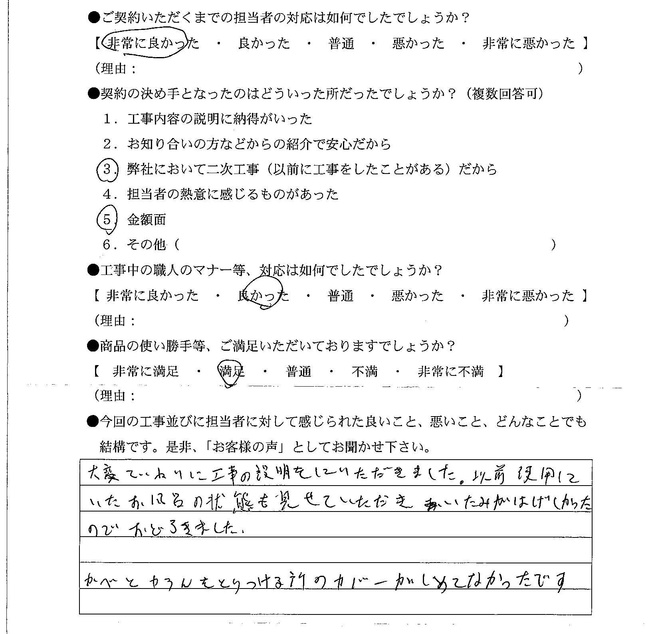 ●ご契約いただくまでの担当者の対応は如何でしたでしょうか？
【 非常に良かった ・ 良かった ・ 普通 ・ 悪かった ・ 非常に悪かった 】
（理由： ）
●契約の決め手となったのはどういった所だったでしょうか？（複数回答可）
１．工事内容の説明に納得がいった
２．お知り合いの方などからの紹介で安心だから
３．弊社において二次工事（以前に工事をしたことがある）だから
４．担当者の熱意に感じるものがあった
５．金額面
６．その他（ ）
●工事中の職人のマナー等、対応は如何でしたでしょうか？
【 非常に良かった ・ 良かった ・ 普通 ・ 悪かった ・ 非常に悪かった 】
（理由： ）
●商品の使い勝手等、ご満足いただいておりますでしょうか？
【 非常に満足 ・ 満足 ・ 普通 ・ 不満 ・ 非常に不満 】
（理由： ）
●今回の工事並びに担当者に対して感じられた良いこと、悪いこと、どんなことでも
結構です。是非、「お客様の声」としてお聞かせ下さい。
大変ていねいに工事の説明をしていただきました。以前使用して
いたお風呂の状態も見せていただき いたみがはげしかった
のでおどろきました.
かべとカランをとりつける所のカバーがしめてなかったです